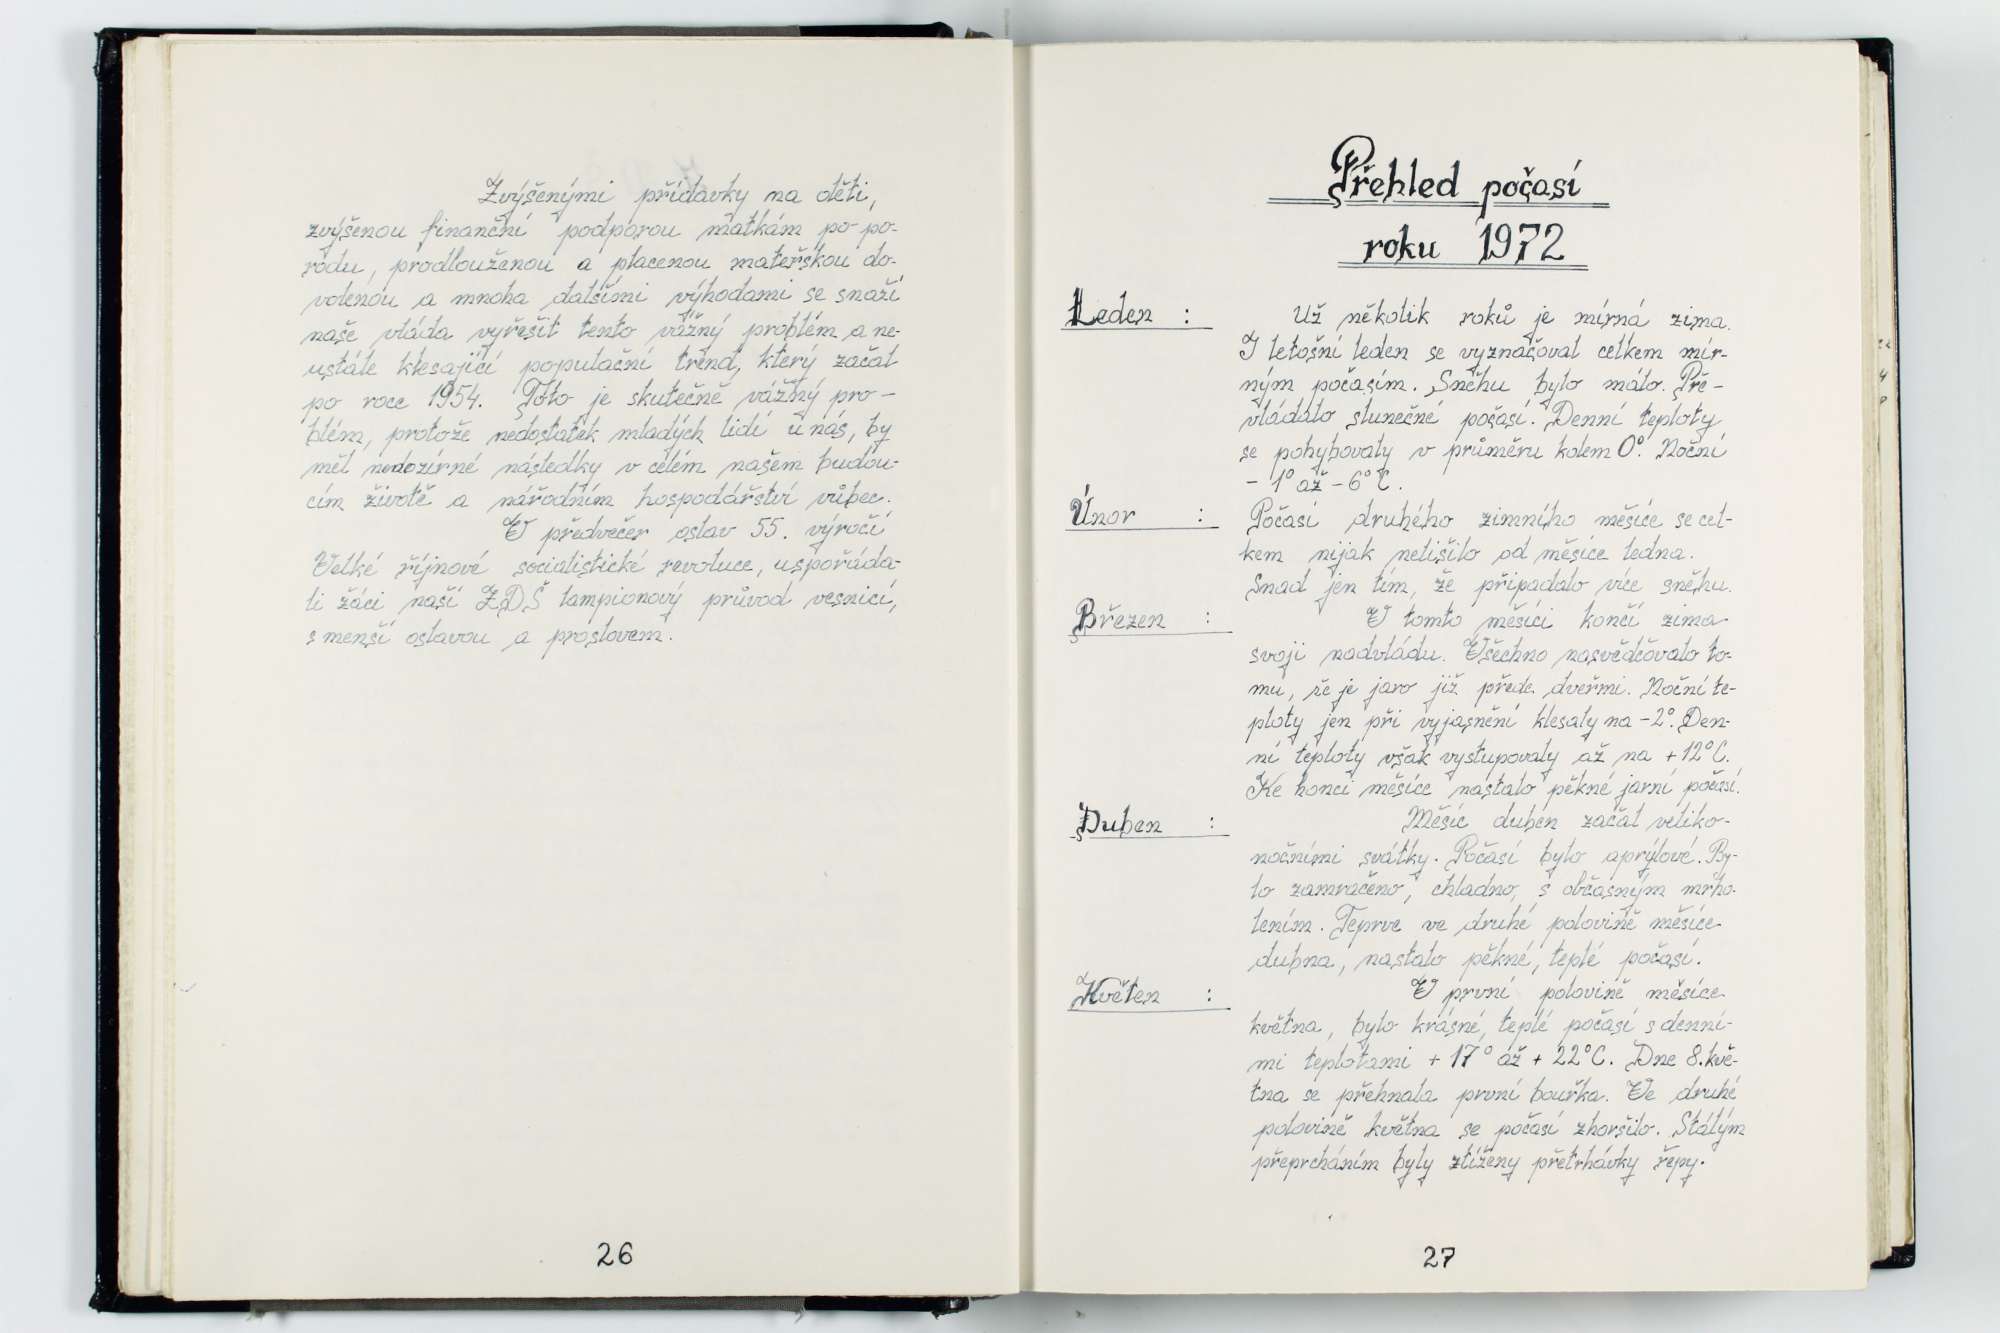 Zvýšenými přídavky na děti,
zvýšenou finanční podporou matkám po po-
rodu, prodlouženou a placenou mateřskou do-
volenou a mnoha dalšími výhodami se snaží
naše vláda vyřešit tento vážný problém a ne-
ustále klesající populační trend, který začal
po roce 1954. Toto je skutečně vážný pro-
blém, protože nedostatek mladých lidí u nás, by
měl nedozírné následky v celém našem budou-
cím životě a národním hospodářství vůbec.
V předvečer oslav 55. výročí
Velké říjnové socialistické revoluce, uspořáda-
li žáci naší ZDŠ lampionový průvod vesnicí,
s menší oslavou a proslovem.
26
Přehled počasí
roku 1972
Leden :
Už několik roků je mírná zima.
I letošní leden se vyznačoval celkem mír-
ným počasím. Sněhu bylo málo. Pře-
vládalo slunečné počasí. Denní teploty
se pohybovaly v průměru kolem 0°. Noční
- 1° až - 6° C.
Únor :
Počasí druhého zimního měsíce se cel-
kem nijak nelišilo od měsíce ledna.
Snad jen tím, že připadalo více sněhu.
Březen :
V tomto měsíci končí zima
svoji nadvládu. Všechno nasvědčovalo to-
mu, že je jaro již přede dveřmi. Noční te-
ploty jen při vyjasnění klesaly na -2°. Den-
ní teploty však vystupovaly až na + 12°C.
Ke konci měsíce nastalo pěkné jarní počasí.
Duben :
Měsíc duben začal veliko-
nočními svátky. Počasí bylo aprýlové. By-
lo zamračeno, chladno, s občasným mrho-
lením. Teprve ve druhé polovině měsíce
dubna, nastalo pěkné, teplé počasí.
Květen :
V první polovině měsíce
května, bylo krásné, teplé počasí s denní-
mi teplotami + 17° až + 22°C. Dne 8. kvě-
tna se přehnala první bouřka. Ve druhé
polovině května se počasí zhoršilo. Stálým
přeprcháním byly ztíženy přetrhávky řepy.
27